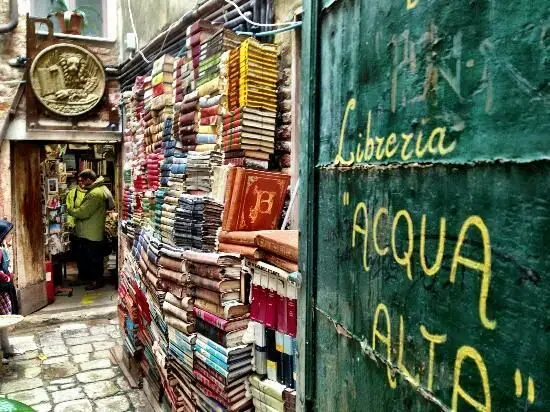 Libreria
"ACQUA
ALTA"